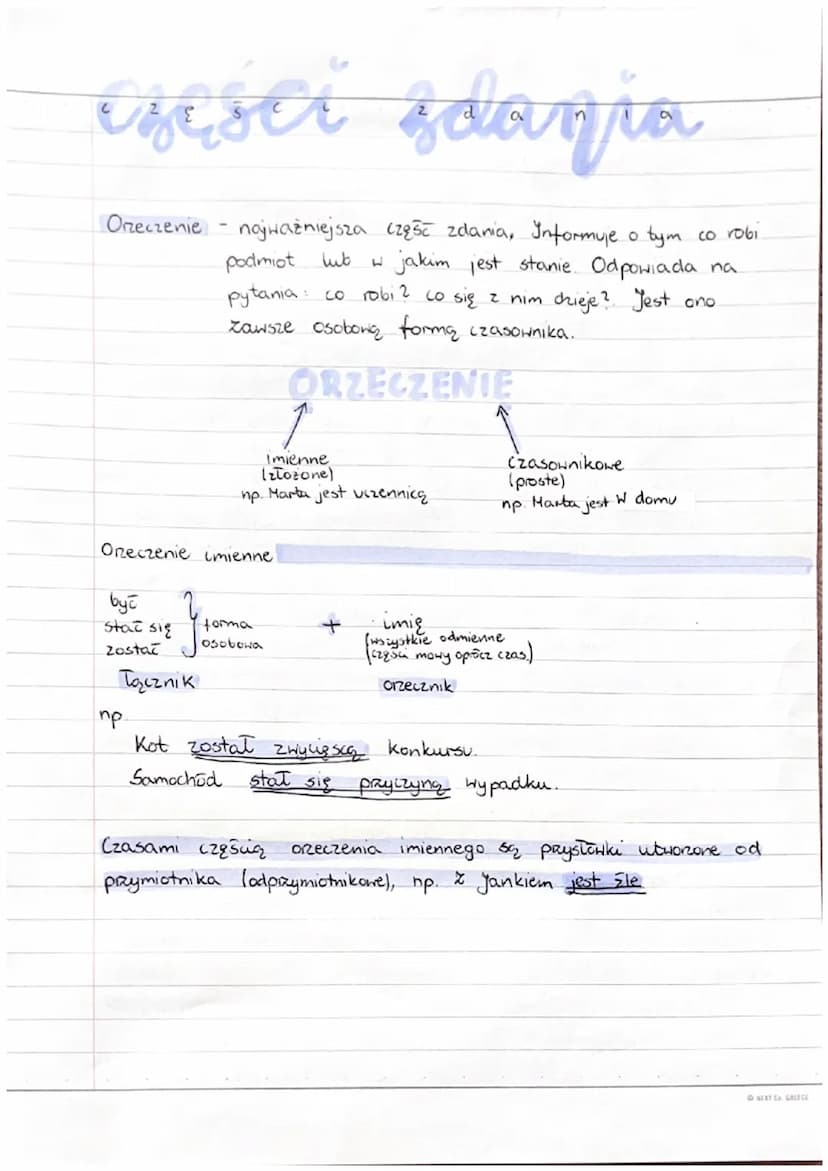 części zdania
c z ę ś c i z d a n i a
Orzeczenie - najważniejsza część zdania, Informuje o tym co robi
podmiot lub w jakim jest stanie. Odpowiada na
pytania: co robi? co się z nim dzieje?. Jest ono
zawsze osobową formą czasownika.
ORZECZENIE
imienne
(złożone)
np. Marta jest uczennicą
czasownikowe
(proste)
np. Marta jest w domu
Orzeczenie imienne
być
stać się
zostać
} forma
osobowa
+
imię
(wszystkie odmienne
części mowy oprócz czas.)
łącznik
orzecznik
np.
Kot został zwycięzcą konkursu.
Samochód stał się przyczyną wypadku.
Czasami częścią orzeczenia imiennego są przysłówki utworzone od
przymiotnika (odprzymiotnikowe), np. Z Jankiem jest źle